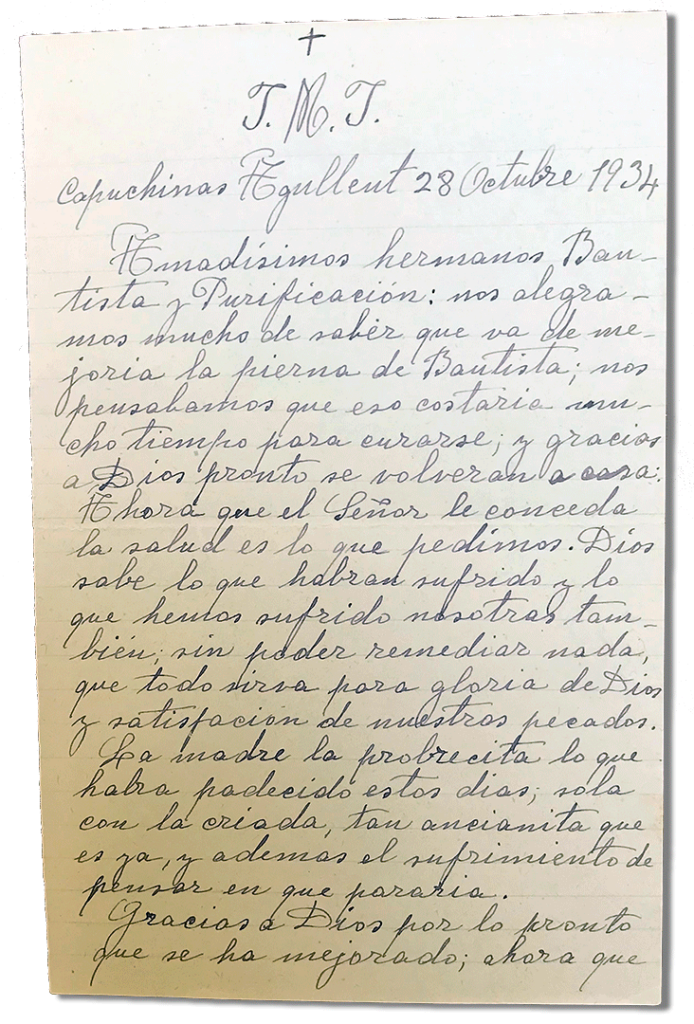 +
J. M. J.
Capuchinas Agullent 28 Octubre 1934
Amadísimos hermanos Bau-
tista y Purificación: nos alegra-
mos mucho de sabér que va de me-
joria la pierna de Bautista; nos
pensabamos que eso costaria mu-
cho tiempo para curarse; y gracias
a Dios pronto se volveran a casa:
Ahora que el Señor le conceda
la salud es lo que pedimos. Dios
sabe lo que habran sufrido y lo
que hemos sufrido nosotras tam-
bién; sin poder remediar nada,
que todo sirva para gloria de Dios
y satisfacion de nuestros pecados.
La madre la probrecita lo que
habra padecido estos dias; sola
con la criada, tan ancianita que
es ya, y ademas el sufrimiento de
pensar en que pararia.
Gracias a Dios por lo pronto
que se ha mejorado; ahora que